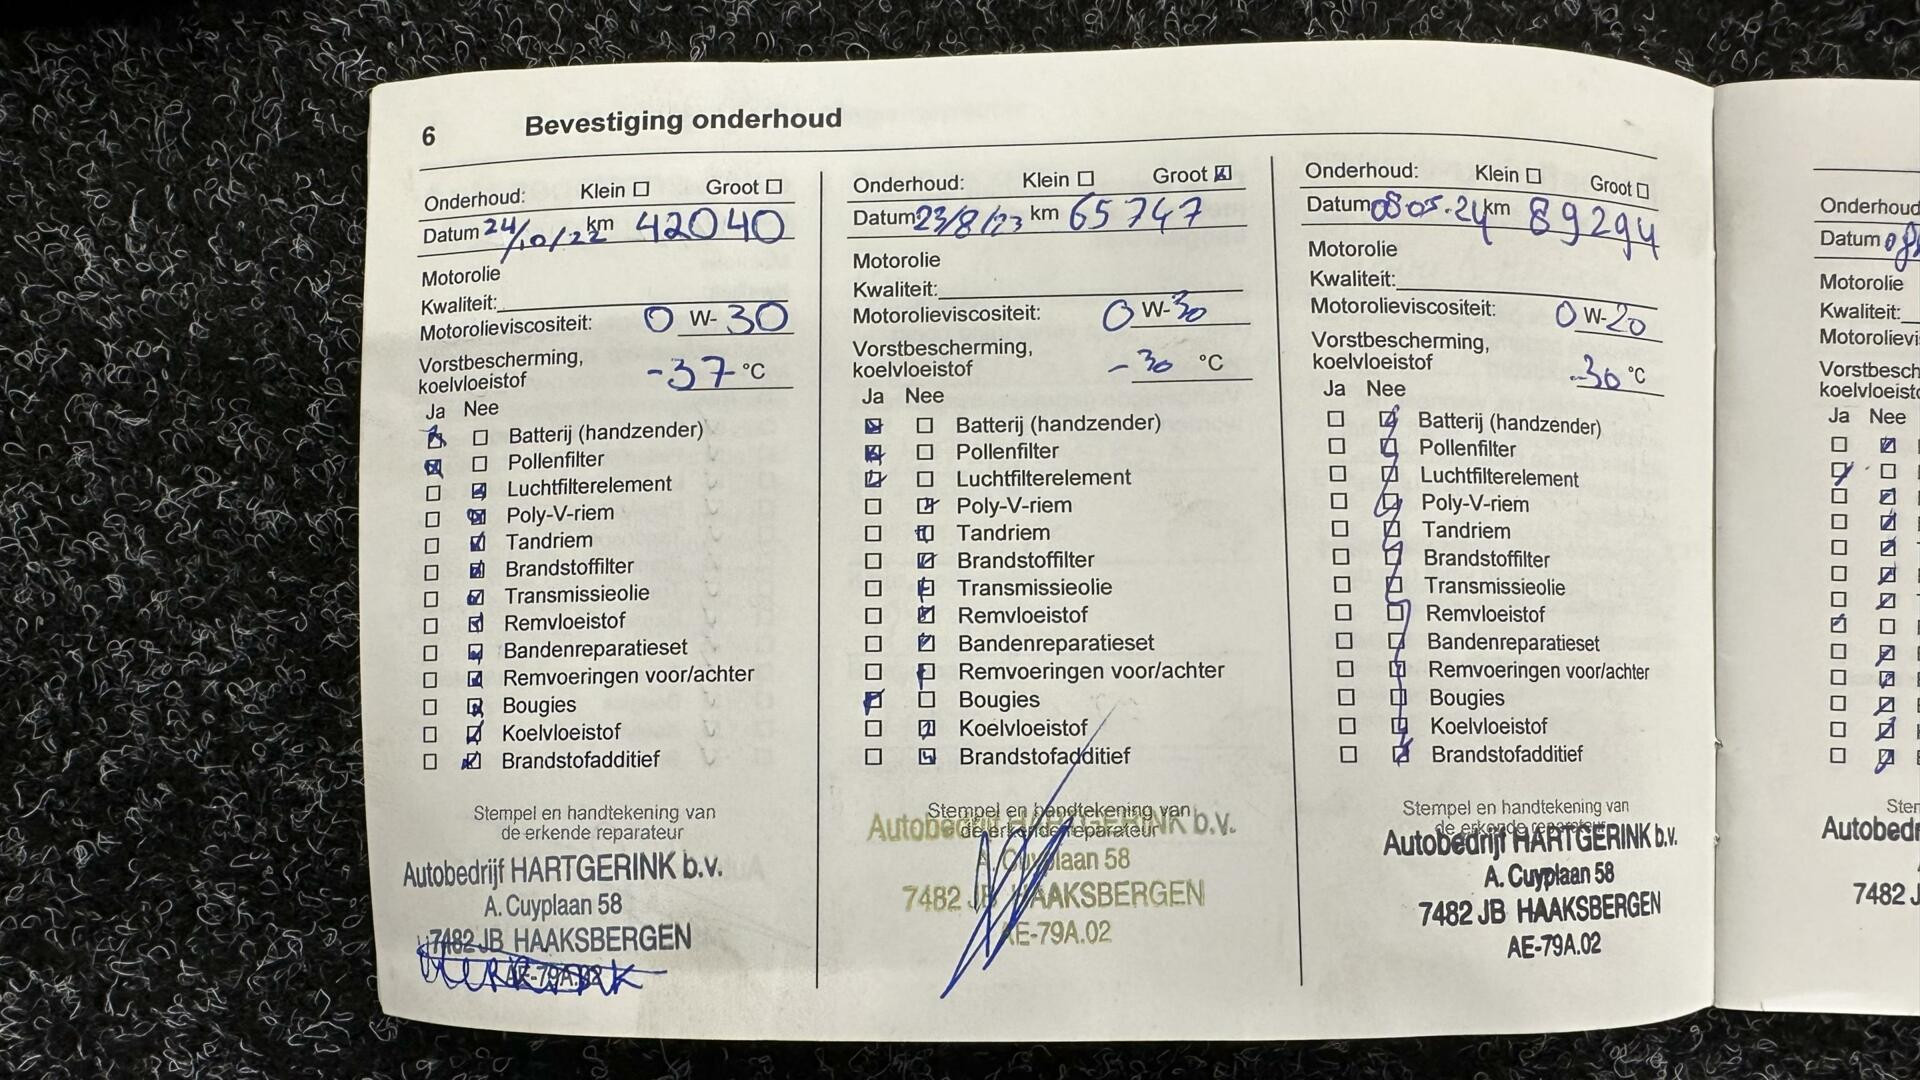 6 Bevestiging onderhoud
Onderhoud: Klein Groot
Datum 24/10/22 km 42040
Motorolie
Kwaliteit:
Motorolieviscositeit: 0 W- 30
Vorstbescherming,
koelvloeistof -37 °C
Ja Nee
Batterij (handzender)
Pollenfilter
Luchtfilterelement
Poly-V-riem
Tandriem
Brandstoffilter
Transmissieolie
Remvloeistof
Bandenreparatieset
Remvoeringen voor/achter
Bougies
Koelvloeistof
Brandstofadditief
Stempel en handtekening van
de erkende reparateur
Autobedrijf HARTGERINK b.v.
A. Cuyplaan 58
7482 JB HAAKSBERGEN
AE-79A.02
Onderhoud: Klein Groot
Datum 23/8/23 km 65747
Motorolie
Kwaliteit:
Motorolieviscositeit: 0 W-30
Vorstbescherming,
koelvloeistof -30 °C
Ja Nee
Batterij (handzender)
Pollenfilter
Luchtfilterelement
Poly-V-riem
Tandriem
Brandstoffilter
Transmissieolie
Remvloeistof
Bandenreparatieset
Remvoeringen voor/achter
Bougies
Koelvloeistof
Brandstofadditief
Stempel en handtekening van
de erkende reparateur
Autobedrijf HARTGERINK b.v.
A. Cuyplaan 58
7482 JB HAAKSBERGEN
AE-79A.02
Onderhoud: Klein Groot
Datum 08-05-24 km 89294
Motorolie
Kwaliteit:
Motorolieviscositeit: 0 W-20
Vorstbescherming,
koelvloeistof -30 °C
Ja Nee
Batterij (handzender)
Pollenfilter
Luchtfilterelement
Poly-V-riem
Tandriem
Brandstoffilter
Transmissieolie
Remvloeistof
Bandenreparatieset
Remvoeringen voor/achter
Bougies
Koelvloeistof
Brandstofadditief
Stempel en handtekening van
de erkende reparateur
Autobedrijf HARTGERINK b.v.
A. Cuyplaan 58
7482 JB HAAKSBERGEN
AE-79A.02
Onderhoud
Datum
Motorolie
Kwaliteit:
Motorolievi
Vorstbesch
koelvloeisto
Ja Nee
Ster
Autobedr
7482 J